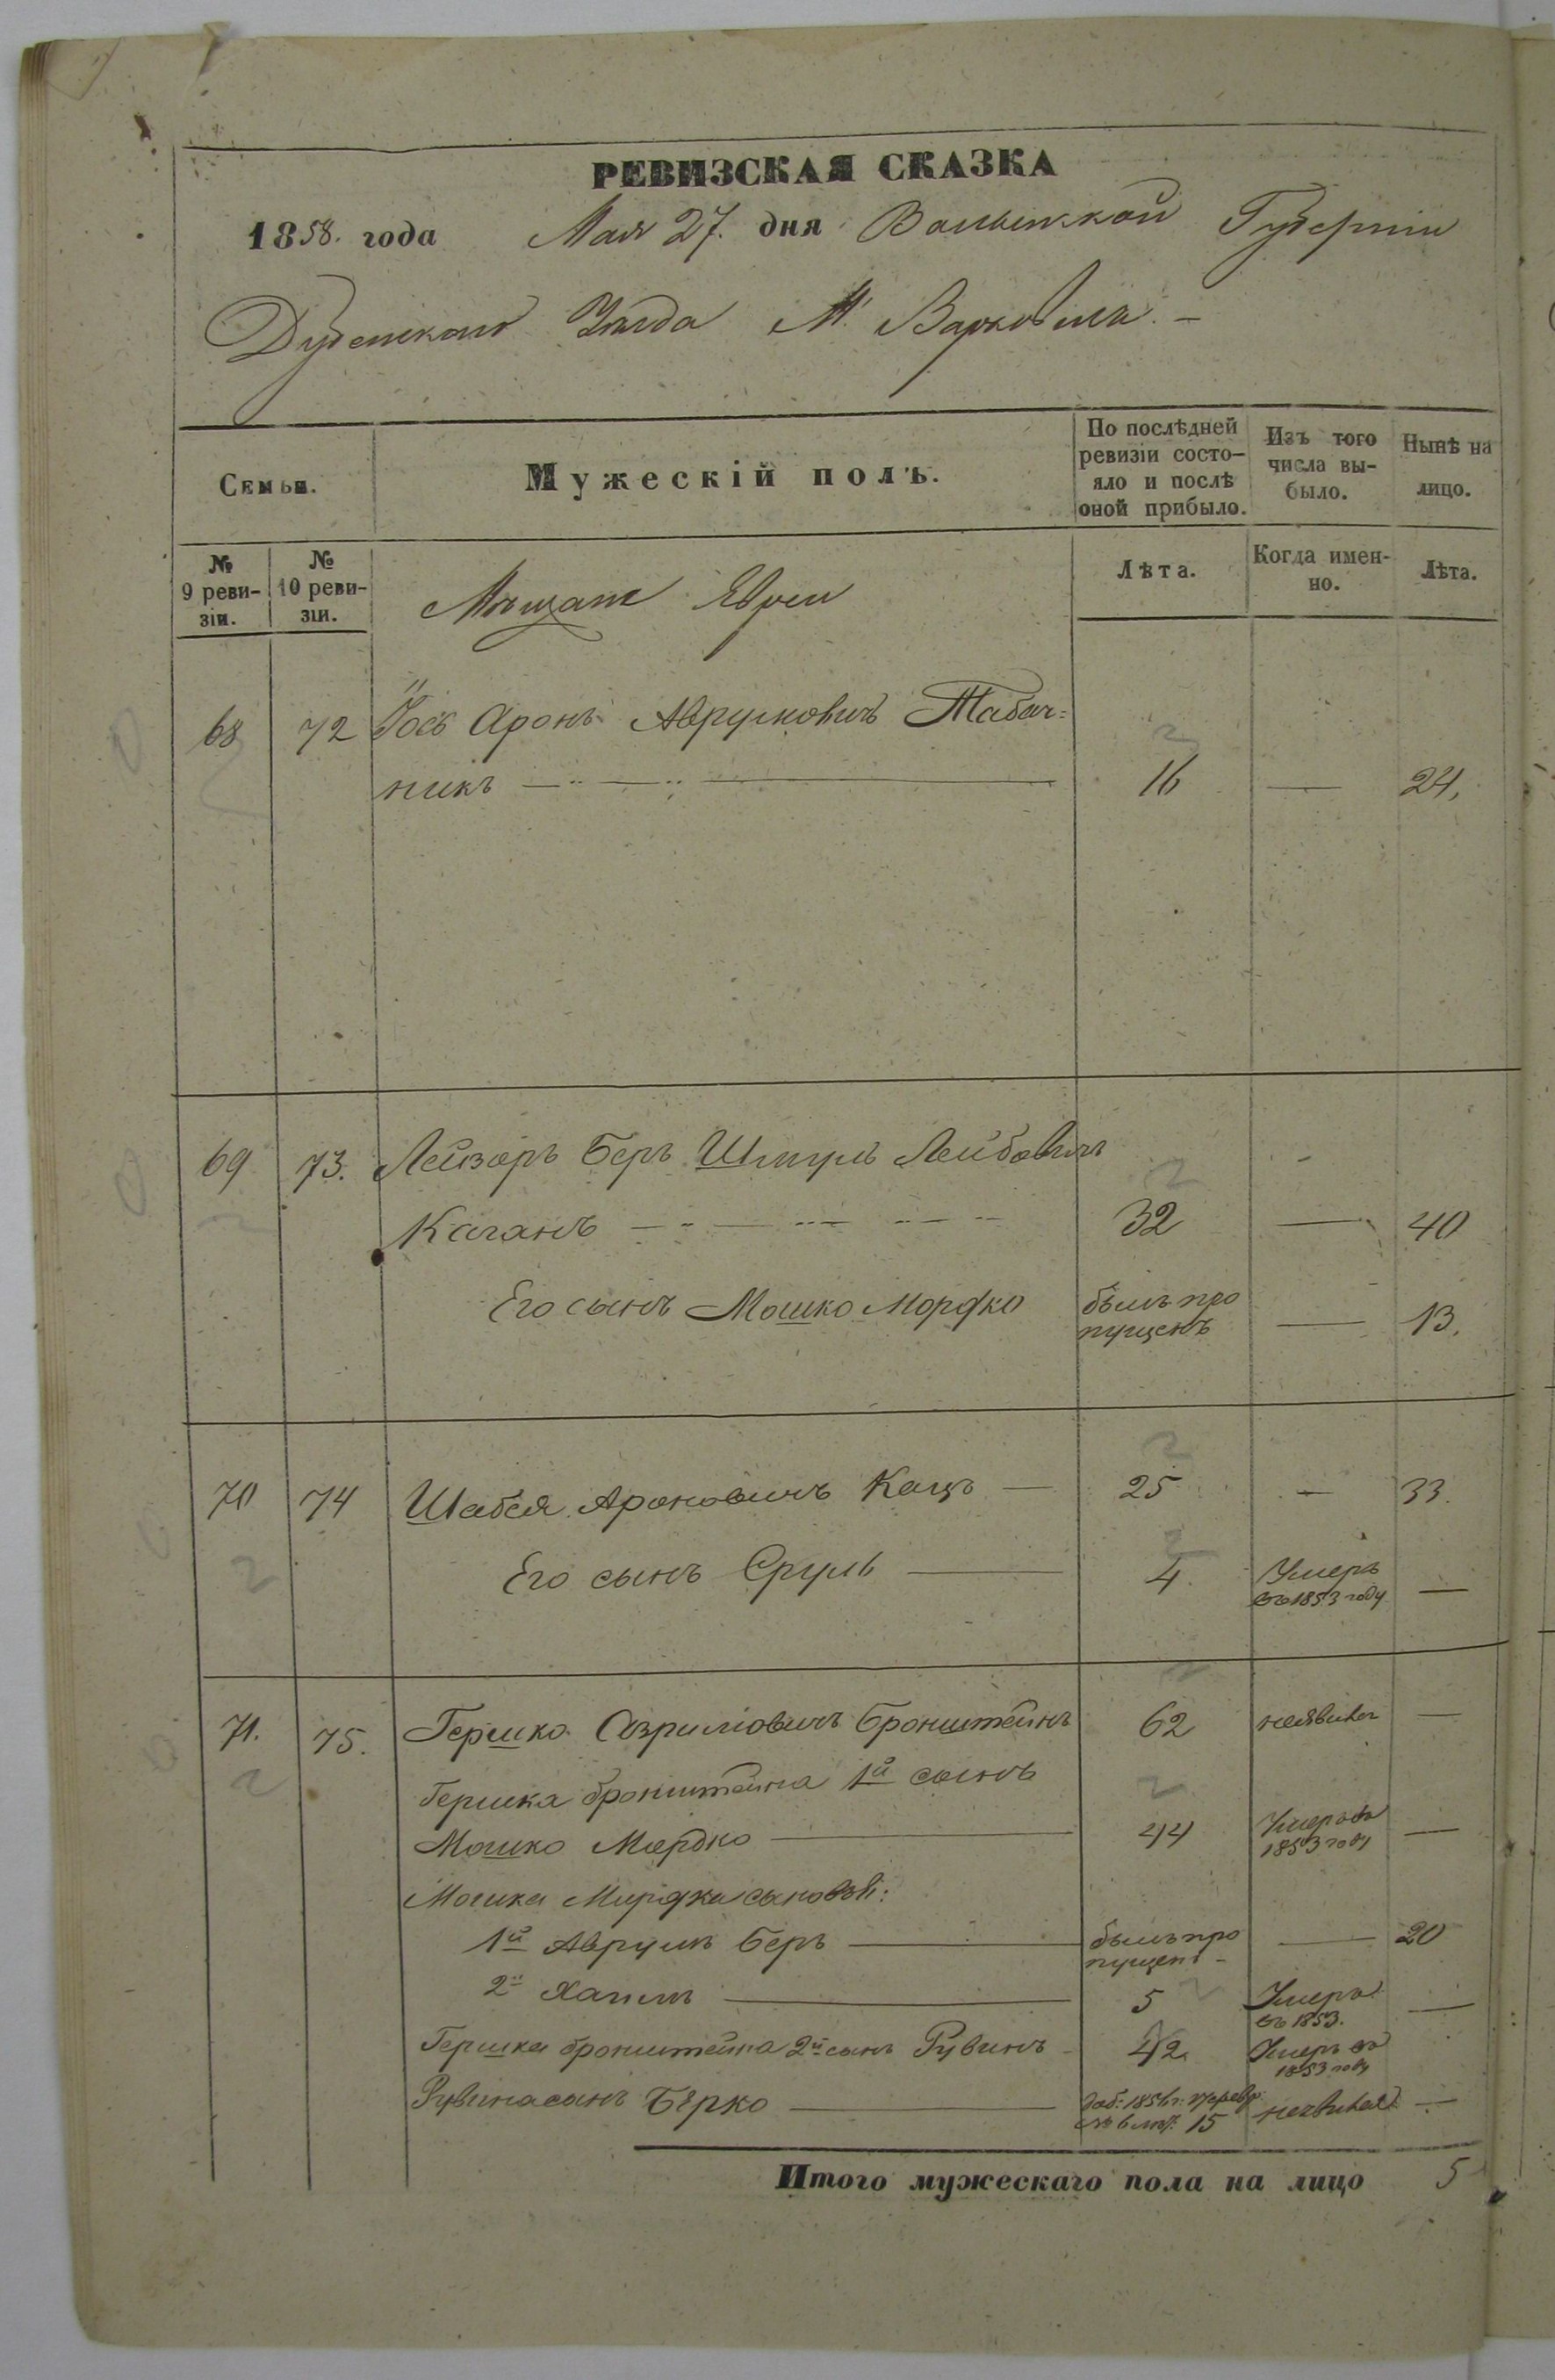 РЕВИЗСКАЯ СКАЗКА
1858. года Мая 27. дня Волынской Губерніи
Дубенскаго Уѣзда М. Варковичъ. —
Семьи.
Мужескій полъ.
По послѣдней ревизіи состо-
яло и послѣ
оной прибыло.
Изъ того
числа вы-
было.
Нынѣ на
лицо.
№
9 реви-
зіи.
№
10 реви-
зіи.
Мѣщане Евреи
Лѣта.
Когда имен-
но.
Лѣта.
68 72 Іось Аронъ Аврумовичъ Табач=
никъ 16 — 24.
69 73. Лейзоръ Беръ Шмуль Лейбовичъ
Каганъ 32 — 40
Его сынъ Мошко Мордко былъ про
пущенъ — 13.
70 74 Шабся Ароновичъ Кацъ — 25 — 33.
Его сынъ Сруль 4. Умеръ
въ 1853 году —
71. 75. Гершко Азриліовичъ Бронштейнъ 62 неявился —
Гершка Бронштейна 1й сынъ
Мошко Мордко 44 Умеръ въ
1853 году —
Мошка Мордка сыновья:
1й Аврумъ Беръ былъ про
пущенъ — 20
2й Хаимъ 5 Умеръ
въ 1853. —
Гершка Бронштейна 2й сынъ Рувинъ 42 Умеръ въ
1853 году
Рувина сынъ Берко 15 неявился —
Итого мужескаго пола на лицо 5